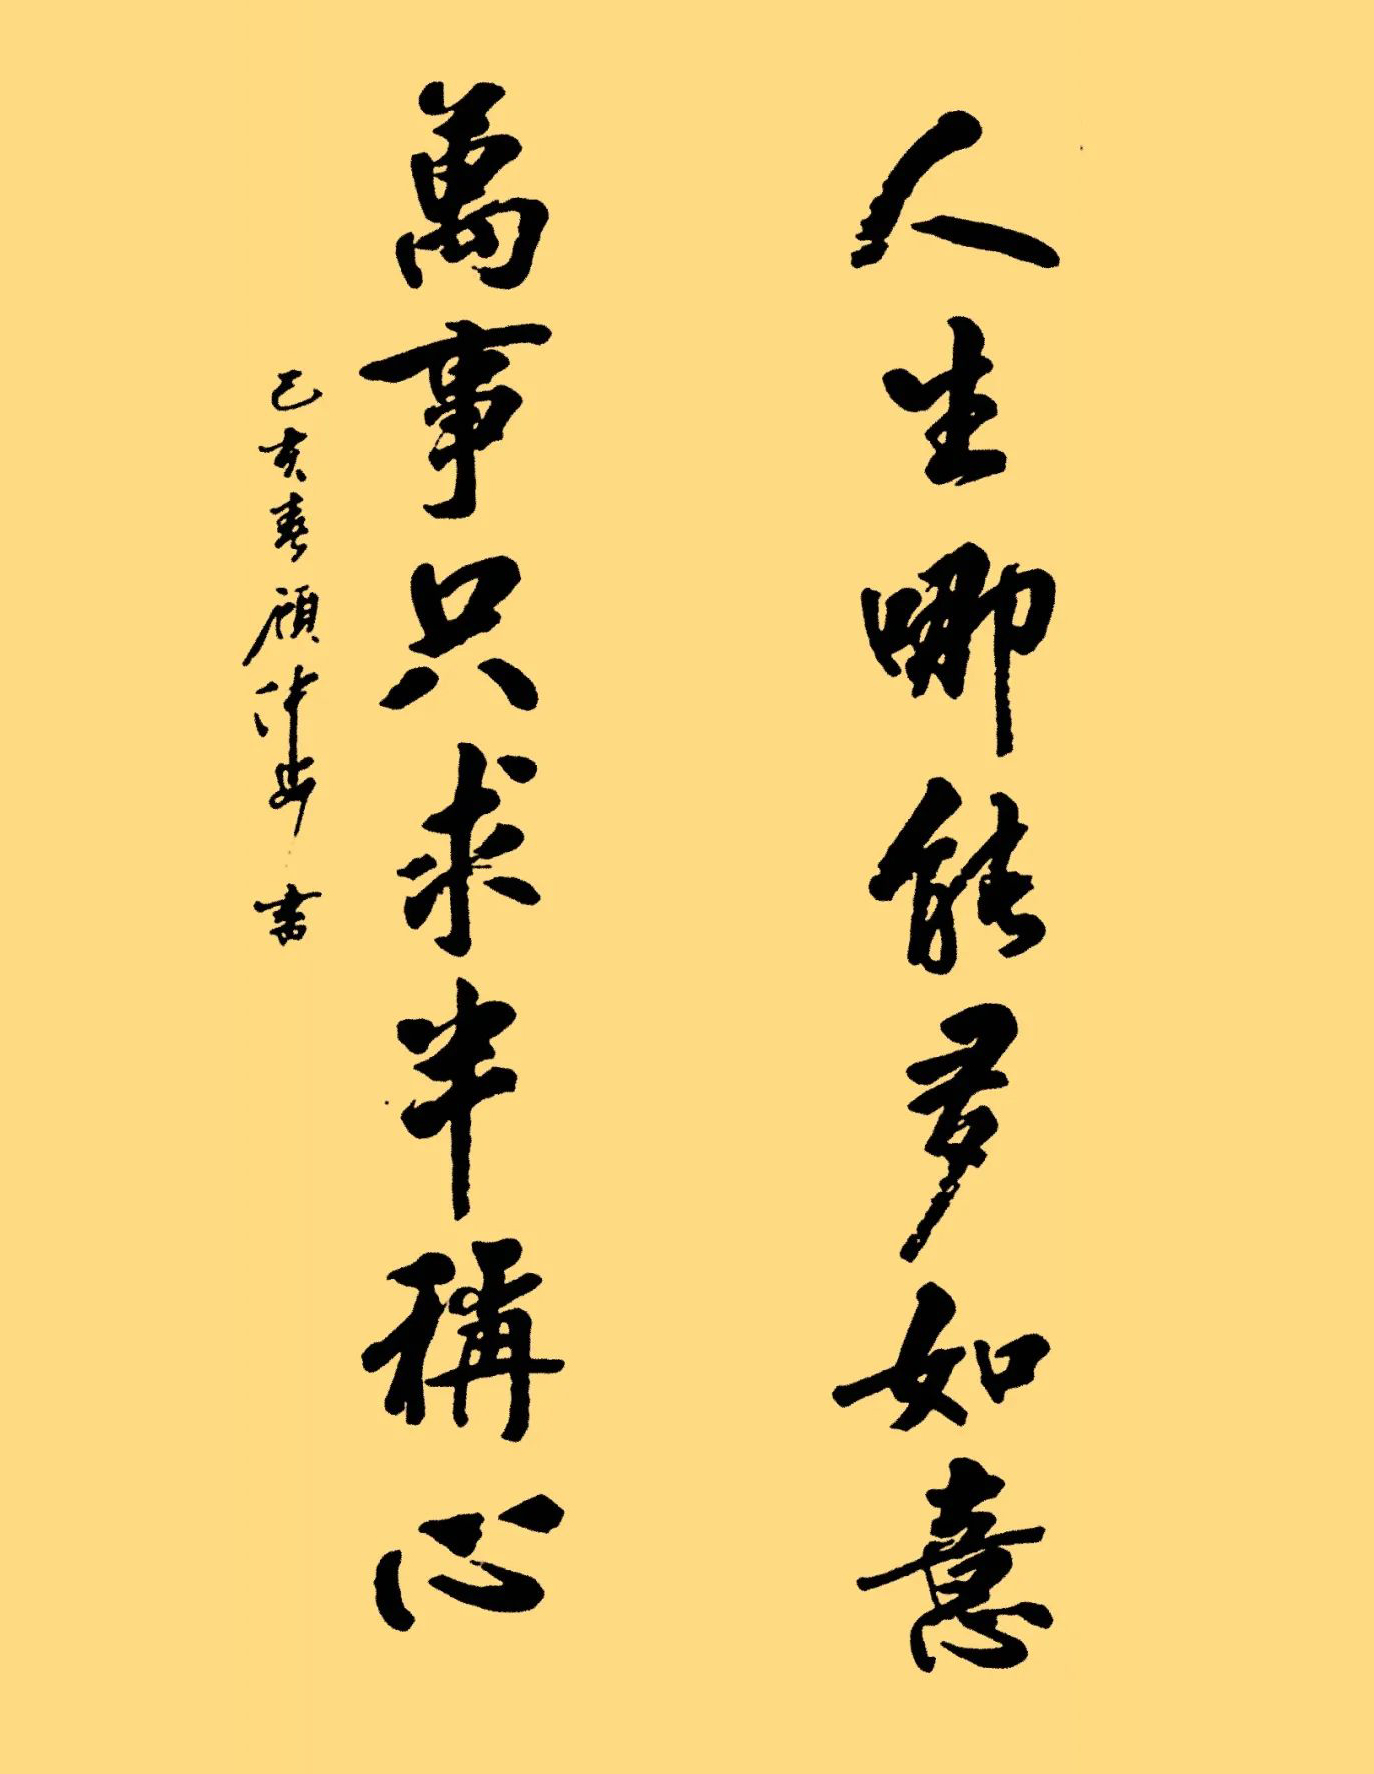 人生哪能多如意
萬事只求半稱心
己亥春 顧 書